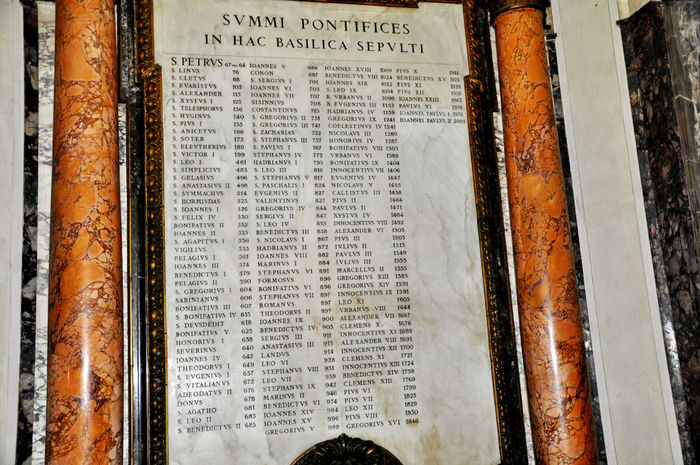 SVMMI PONTIFICES
IN HAC BASILICA SEPVLTI
S. PETRVS 67 64
S. LINVS 76
S. CLETVS 88
S. EVARISTVS 105
S. ALEXANDER 115
S. XYSTVS I 125
S. TELESPHORVS 136
S. HYGINVS 140
S. PIVS I 155
S. ANICETVS 166
S. SOTER 175
S. ELEVTHERIVS 189
S. VICTOR I 199
S. LEO I 461
S. SIMPLICIVS 483
S. GELASIVS 496
S. ANASTASIVS II 498
S. SYMMACHVS 514
S. HORMISDAS 523
S. IOANNES I 526
S. FELIX IV 530
BONIFATIVS II 532
S. AGAPITVS I 536
VIGILIVS 555
PELAGIVS I 561
IOANNES III 574
BENEDICTVS I 579
PELAGIVS II 590
S. GREGORIVS I 604
SABINIANVS 606
BONIFATIVS III 607
S. BONIFATIVS IV 615
S. DEVSDEDIT 618
BONIFATIVS V 625
HONORIVS I 638
SEVERINVS 640
IOANNES IV 642
THEODORVS I 649
S. EVGENIVS I 657
S. VITALIANVS 672
ADEODATVS II 676
DONVS 678
S. AGATHO 681
S. LEO II 683
S. BENEDICTVS II 685
IOANNES V 686
CONON 687
S. SERGIVS I 701
IOANNES VI 705
IOANNES VII 707
SISINNIVS 708
COSTANTINVS 715
S. GREGORIVS II 731
S. GREGORIVS III 741
S. ZACHARIAS 752
S. STEPHANVS III 757
S. PAVLVS I 767
STEPHANVS IV 772
HADRIANVS I 795
S. LEO III 816
S. STEPHANVS V 817
S. PASCHALIS I 824
EVGENIVS II 827
VALENTINVS 827
GREGORIVS IV 844
SERGIVS II 847
S. LEO IV 855
BENEDICTVS III 858
S. NICOLAVS I 867
HADRIANVS II 872
IOANNES VIII 882
MARINVS I 884
STEPHANVS VI 891
FORMOSVS 896
BONIFATIVS VI 896
STEPHANVS VII 897
ROMANVS 897
THEODORVS II 897
IOANNES IX 900
BENEDICTVS IV 903
SERGIVS III 911
ANASTASIVS III 913
LANDVS 914
LEO VI 928
STEPHANVS VIII 931
LEO VII 939
STEPHANVS IX 942
MARINVS II 946
BENEDICTVS VI 974
IOANNES XIV 984
IOANNES XV 996
GREGORIVS V 999
IOANNES XVIII 1009
BENEDICTVS VIII 1024
IOANNES XIX 1032
S. LEO IX 1054
B. VRBANVS II 1099
B. EVGENIVS III 1153
HADRIANVS IV 1159
COELESTINVS IV 1241
NICOLAVS III 1280
HONORIVS IV 1287
BONIFATIVS VIII 1303
VRBANVS VI 1389
BONIFATIVS IX 1404
INNOCENTIVS VII 1406
EVGENIVS IV 1447
NICOLAVS V 1455
CALLISTVS III 1458
PIVS II 1464
PAVLVS II 1471
XYSTVS IV 1484
INNOCENTIVS VIII 1492
ALEXANDER VI 1503
PIVS III 1503
IVLIVS II 1513
PAVLVS III 1549
IVLIVS III 1555
MARCELLVS II 1555
GREGORIVS XIII 1585
GREGORIVS XIV 1591
INNOCENTIVS IX 1591
LEO XI 1605
VRBANVS VIII 1644
ALEXANDER VII 1667
CLEMENS X 1676
INNOCENTIVS XI 1689
ALEXANDER VIII 1691
INNOCENTIVS XII 1700
CLEMENS XI 1721
INNOCENTIVS XIII 1724
BENEDICTVS XIV 1758
CLEMENS XIII 1769
PIVS VI 1799
PIVS VII 1823
LEO XII 1829
PIVS VIII 1830
GREGORIVS XVI 1846
PIVS X 1914
BENEDICTVS XV 1922
PIVS XI 1939
PIVS XII 1958
IOANNES XXIII 1963
PAVLVS VI 1978
IOANNES PAVLVS I 1978
IOANNES PAVLVS II 2005